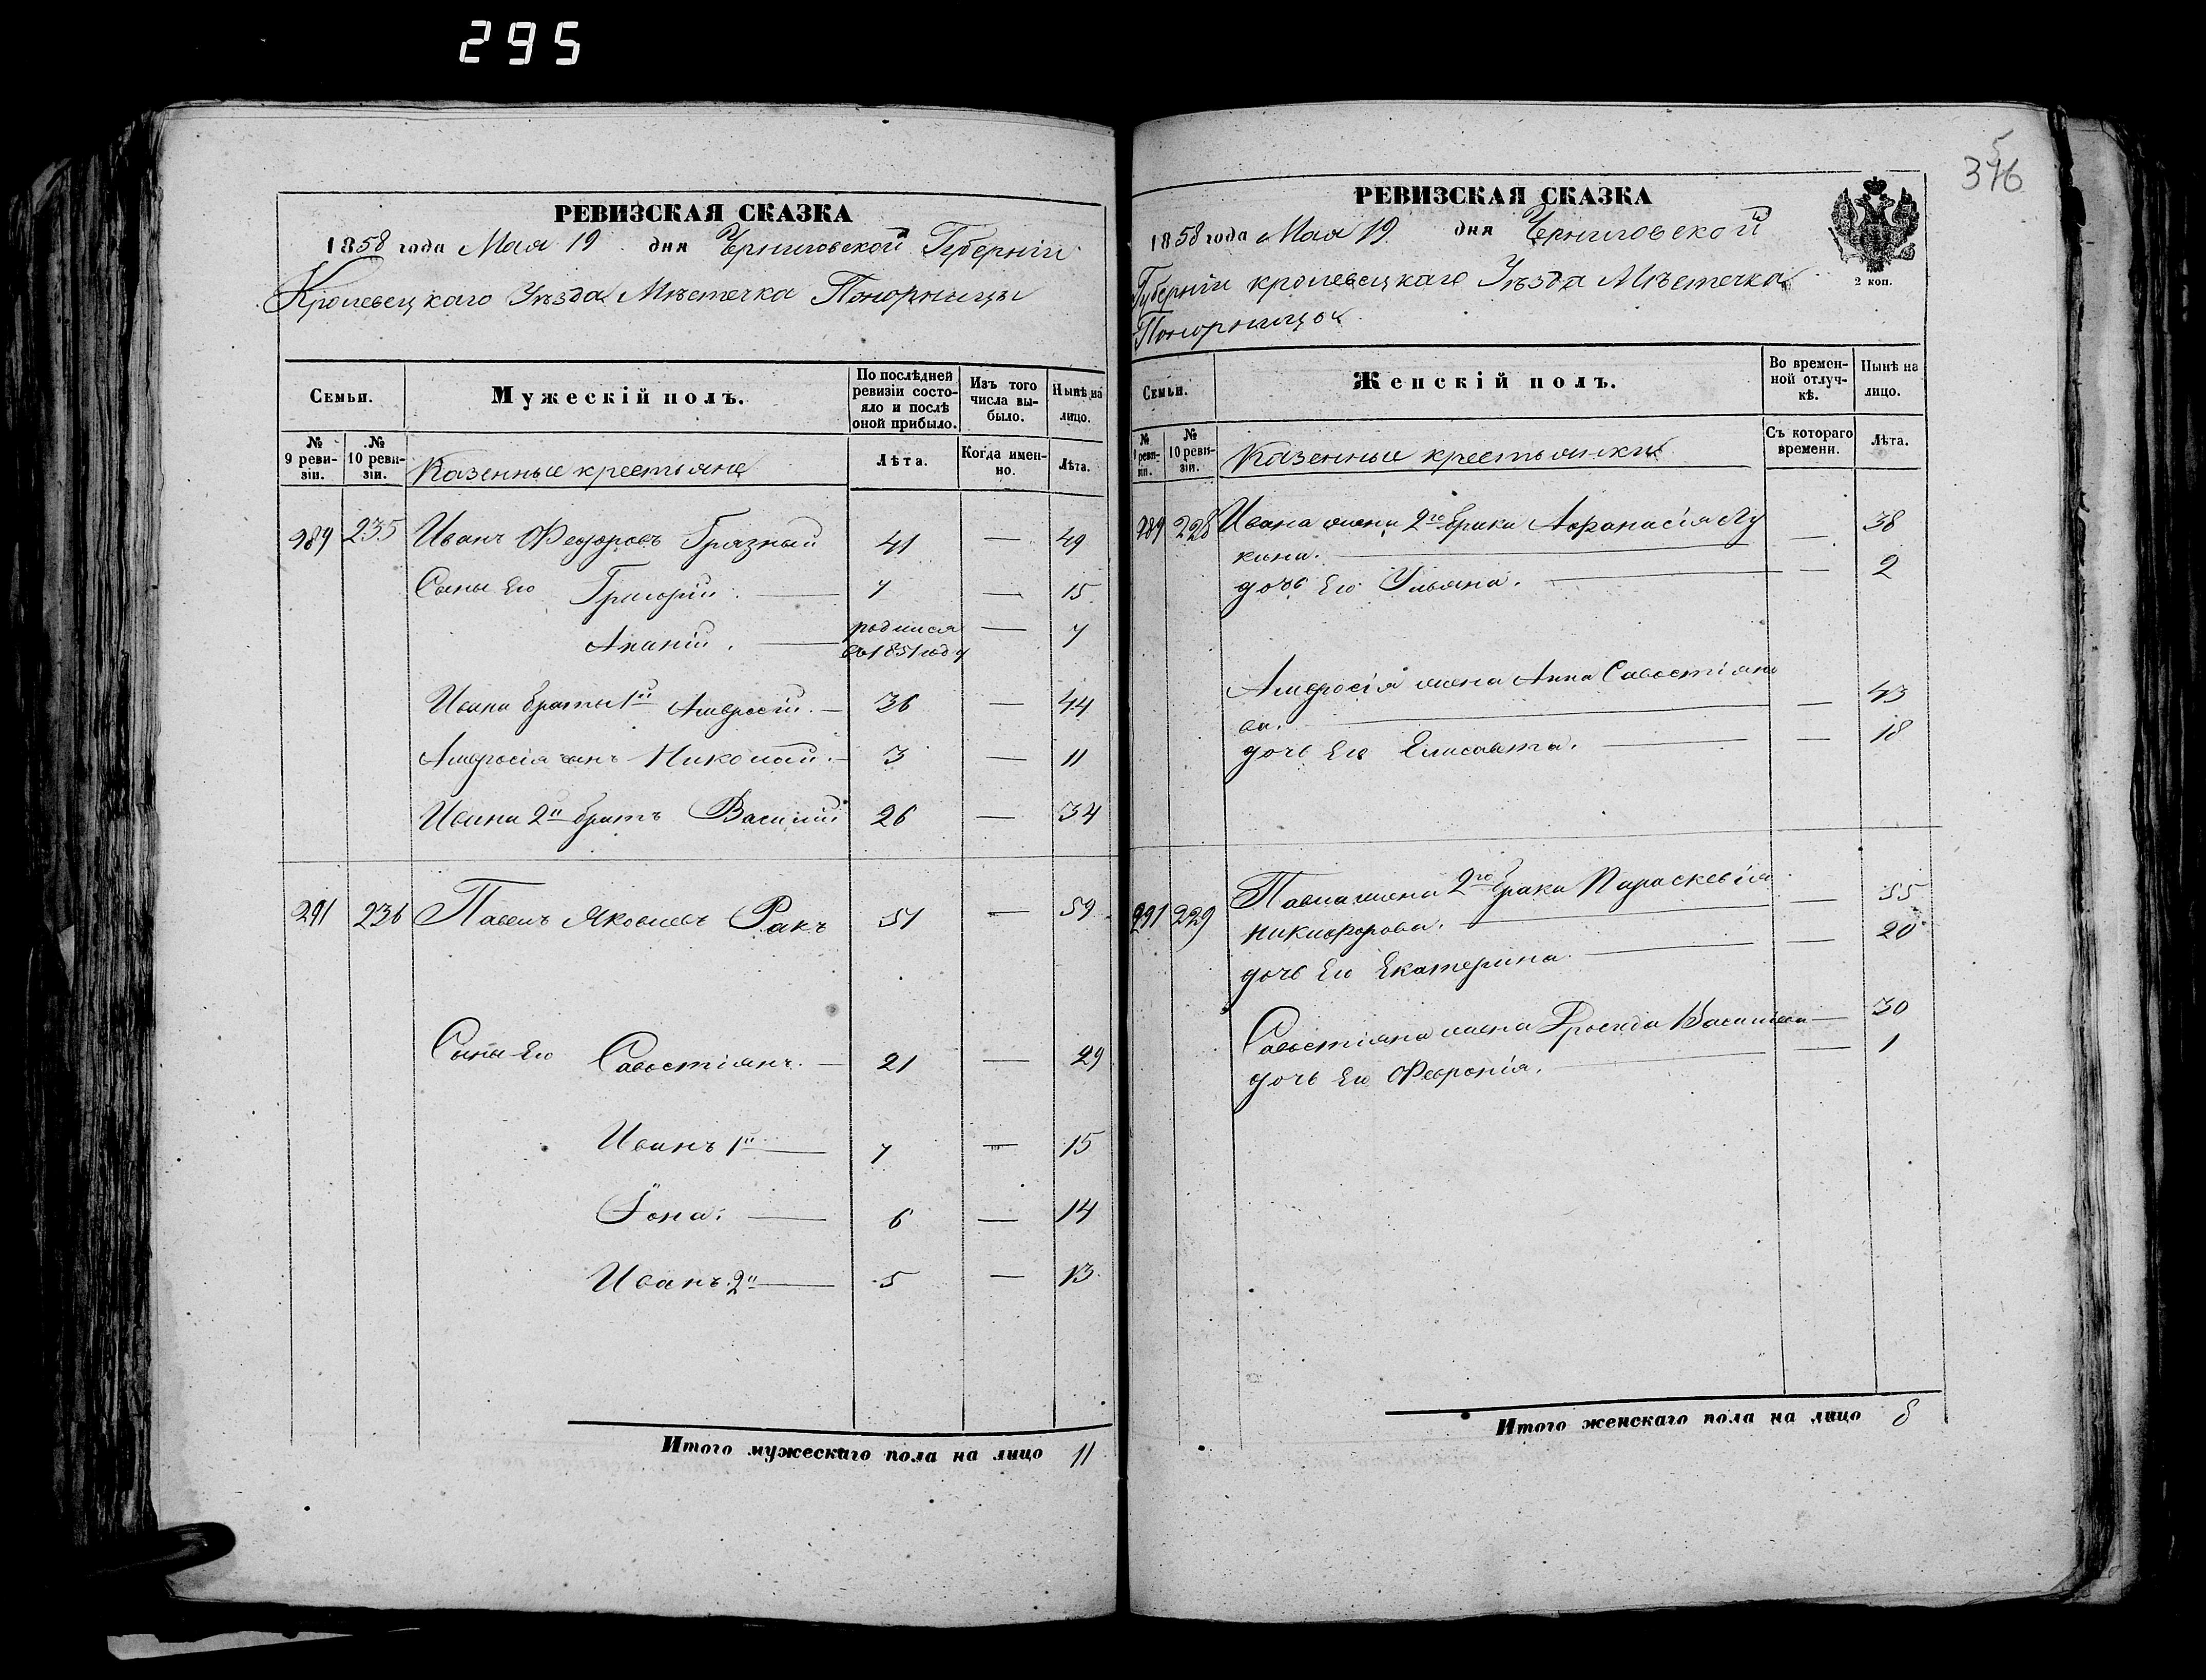 295
РЕВИЗСКАЯ СКАЗКА
1858 года Мая 19 дня Черниговской Губерніи
Кролевецкаго Уѣзда Мѣстечка Понорницы
Семьи.
Мужескій полъ.
По послѣдней ревизіи состояло и послѣ оной прибыло.
Изъ того числа выбыло.
Нынѣ на лицо.
№ 9 ревизіи.
№ 10 ревизіи.
Казенные крестьяне
Лѣта.
Когда именно.
Лѣта.
289 235 Иванъ Федоровъ Грязный 41 — 49
Сыны Его Григорій. — 7 — 15
Ананій. — родился въ 1851 году — 7
Ивана братья 1й Амвросій. — 36 — 44
Амвросія сынъ Николай. — 3 — 11
Ивана 2й братъ Василій 26 — 34
291 236 Павелъ Яковлевъ Ракъ 51 — 59
Сыны Его Савостіянъ. — 21 — 29
Иванъ 1й — 7 — 15
Іона. — 6 — 14
Иванъ 2й — 5 — 13
Итого мужескаго пола на лицо 11
376
5
РЕВИЗСКАЯ СКАЗКА
1858 года Мая 19 дня Черниговской
Губерніи кролевецкаго Уѣзда Мѣстечка
Понорницы
2 коп.
Семьи.
Женскій полъ.
Во временной отлучкѣ.
Нынѣ на лицо.
№ 9 ревизіи.
№ 10 ревизіи.
Казенные крестьянки
Съ котораго времени.
Лѣта.
289 228 Ивана жена 2го брака Афанасія Лу
кина. — — 38
дочь Его Ульяна. — — 2
Амвросія жена Анна Савостіяно
ва. — — 43
дочь Его Елисавета. — — 18
291 229 Павла жена 2го брака Параскевія
Никифорова. — — 55
дочь Его Екатерина — — 20
Савостіяна жена Васильева — 30
дочь Его Февронія. — — 1
Итого женскаго пола на лицо 8